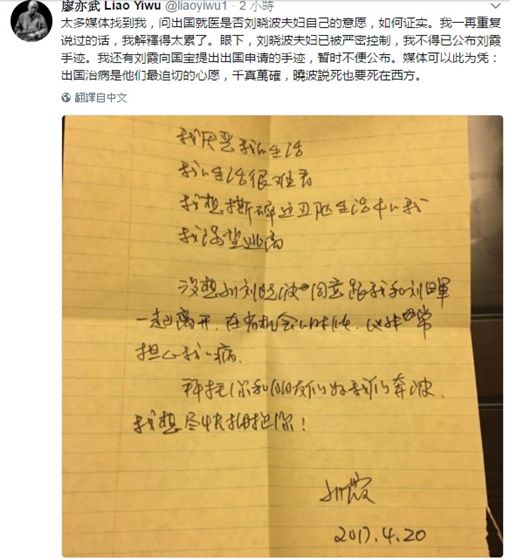 廖亦武 Liao Yiwu @liaoyiwu1 · 2 小時
太多媒体找到我，问出国就医是否刘晓波夫妇自己的意愿，如何证实。我一再重复
说过的话，我解釋得太累了。眼下，刘晓波夫妇已被严密控制，我不得已公布刘霞
手迹。我还有刘霞向国宝提出出国申请的手迹，暂时不便公布。媒体可以此为凭：
出国治病是他们最迫切的心愿，千真萬確，曉波説死也要死在西方。
翻譯自中文
我厌恶我的生活
我的生活很难看
我想撕碎这丑陋生活中的我
我渴望逃离
没想到刘晓波同意跟我和刘晖
一起离开，在有机会的时候，他非常
担心我的病。
拜托你和朋友们为我们奔波，
我想尽快拥抱你！
刘霞
2017.4.20